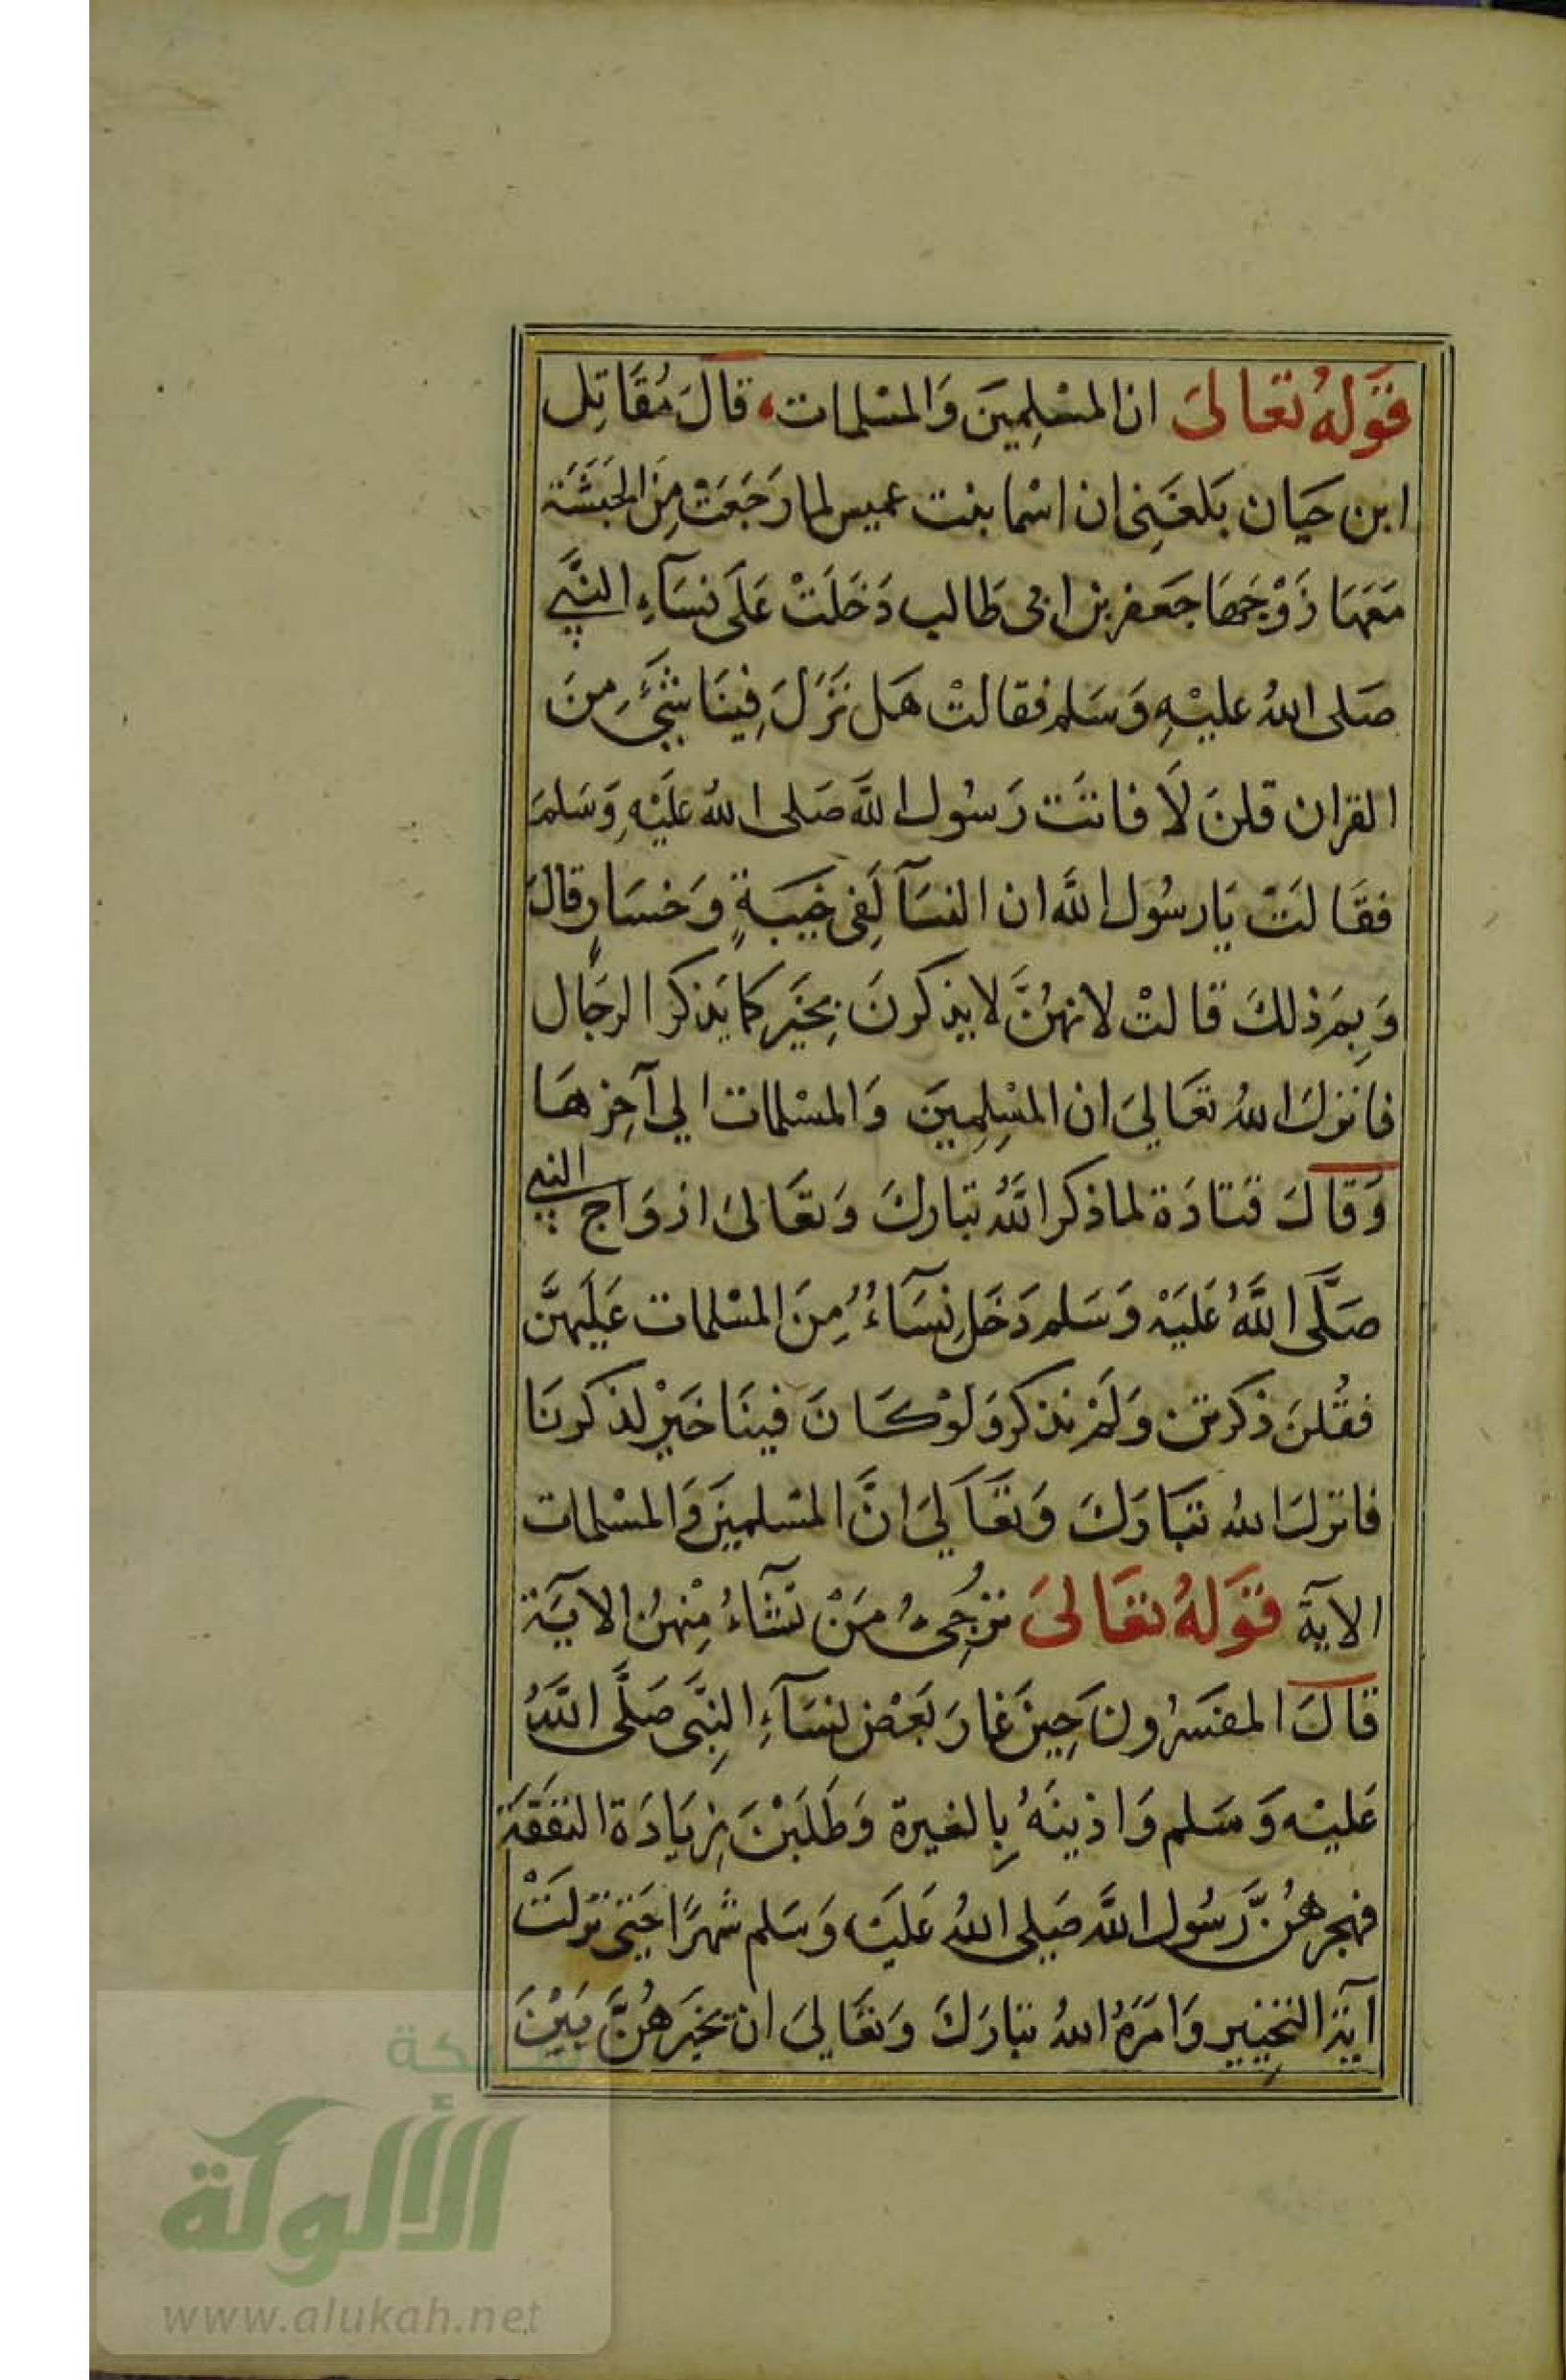 قَوْلهُ تعَالىَ ان المسْلِمِينَ وَالمسْلمات، قالَ مُقَاتِل
ابن حَيان بَلغَنِى ان اسْما بنت عميس لما رَجَعَتْ مِنَ الحَبَشَة
مَعَهَا زَوْجهَا جَعفر بن ابى طَالب دَخَلَتْ عَلَى نسَآءِ النَّبِي
صَلى اللهُ عليْهِ وَسَلم فقالتْ هَل نَزَلَ فِينَا شَئٌ مِنَ
القران قلنَ لَا فاتَت رَسُول اللَّه صَلى اللهُ عَليْهِ وَسَلمَ
فقَالَتْ يَا رسُول اللَّه ان النسَآ لَفِى خَيبَةٍ وَخسَارٍ قالَ
وَبِمَ ذلكَ قالتْ لانهُنَّ لا يذكرونَ بِخَيرٍ كما يَذكر الرجَال
فانزلَ اللهُ تعَاليَ ان المسْلِمِينَ وَالمسْلمات الي آخِرهَا
وَقالَ قتادَة لما ذكر اللَّهُ تبَاركَ وَتعَالىَ ازوَاج النبي
صَلَّى اللَّهُ عَليَهْ وَسَلم دَخَل نِسَآءٌ مِنَ المسْلمات عَليَهنَّ
فقُلنَ ذكرتن وَلَمْ نذكر وَلوْ كَانَ فينَا خَيْر لذكرنَا
فانزلَ اللهُ تبَارَكَ وَتعَاليَ انَّ المسْلمينَ وَالمسْلمات
الآية قَوْلهُ تعَالىَ تُرْجِىُ مَنْ تَشَآءُ مِنْهُن الايَة
قالَ المفَسرُونَ حِينَ غارَ بَعْض نسَآءِ النِبَّى صَلَّى اللَّهُ
عَليْه وَسَلم وَاذينَهُ بِالغيرة وَطَلَبْنَ زيَادَة النفَقَة
فهجرهُنَّ رَسُول اللَّه صَلى اللهُ عَليَه وَسَلم شهرًا حَتى نزلَتْ
آية التخيير وَامَرَهُ اللهُ تبَارَكَ وَتعَاليَ ان يخَيرهُنَّ بَيْنَ
شبكة
الألوكة
www.alukah.net